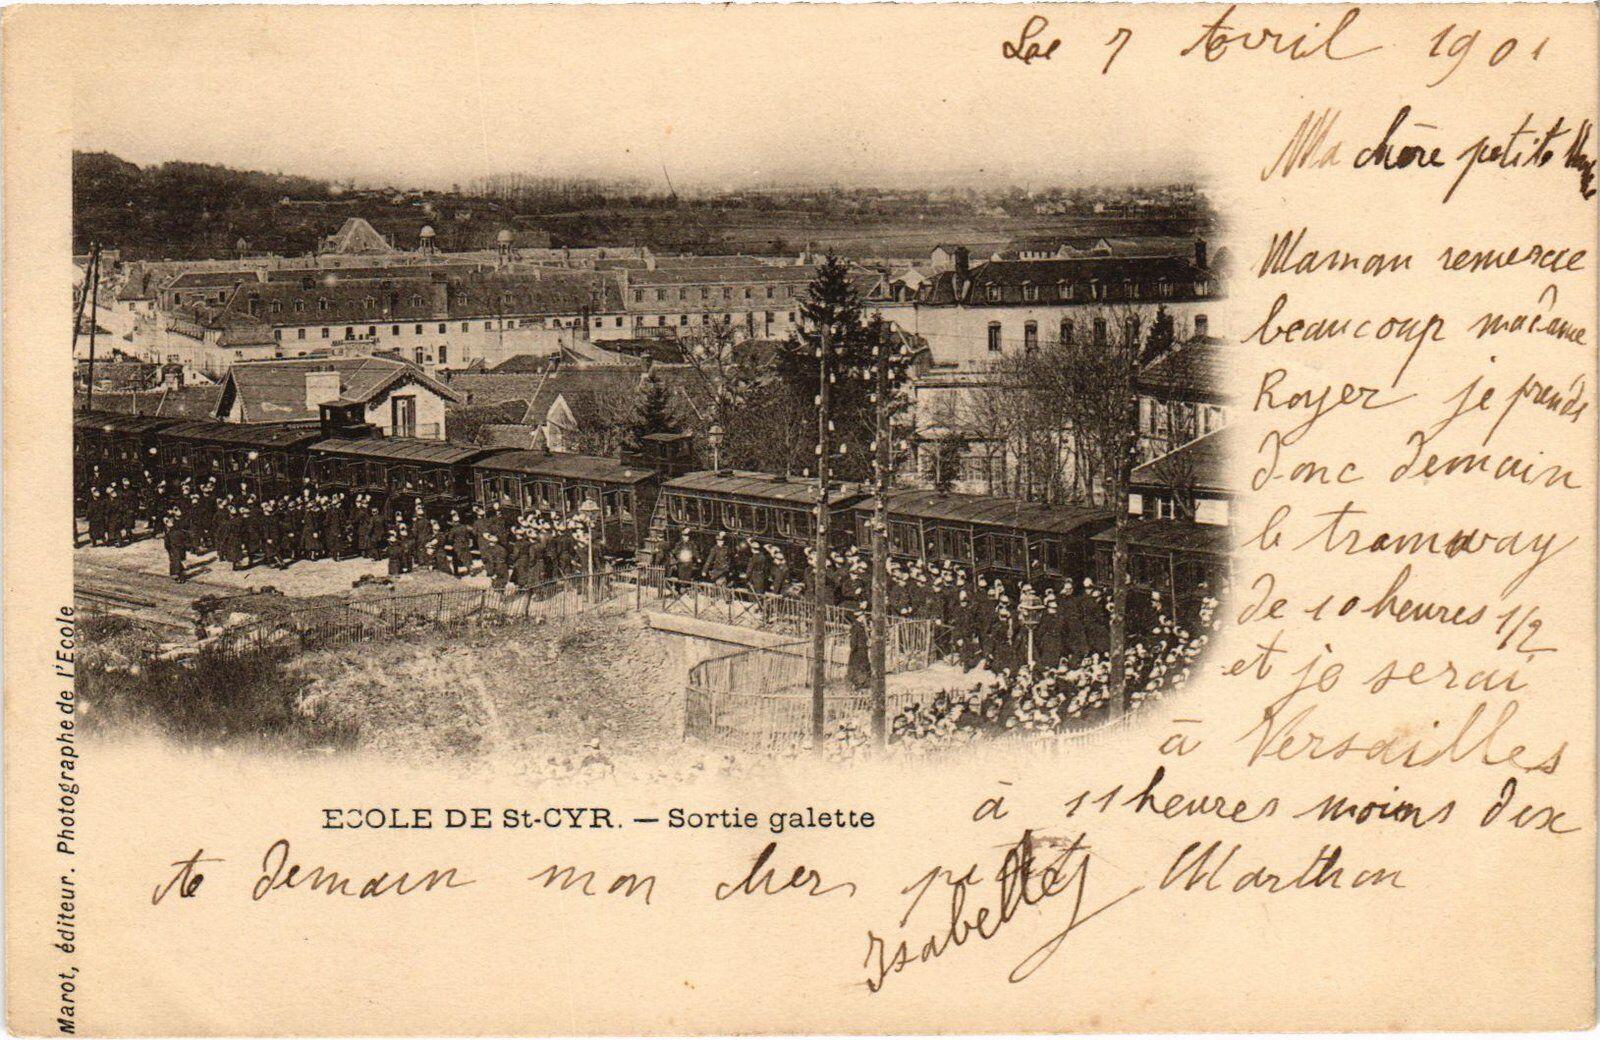 Le 7 Avril 1901
Ma chère petite
Maman remercie
beaucoup madame
Royer je prends
donc demain
le tramway
de 10 heures 1/2
et je serai
à Versailles
à 11 heures moins dix
ECOLE DE St-CYR. — Sortie galette
demain mon cher petit Marthon
Isabelle
Marot, éditeur. Photographe de l'Ecole